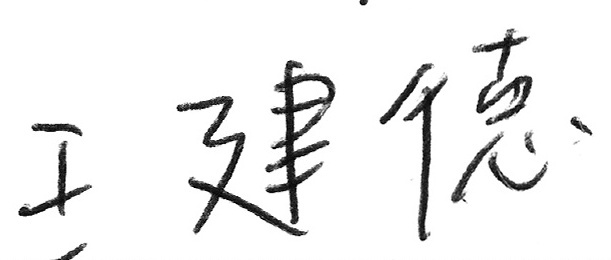 王建德